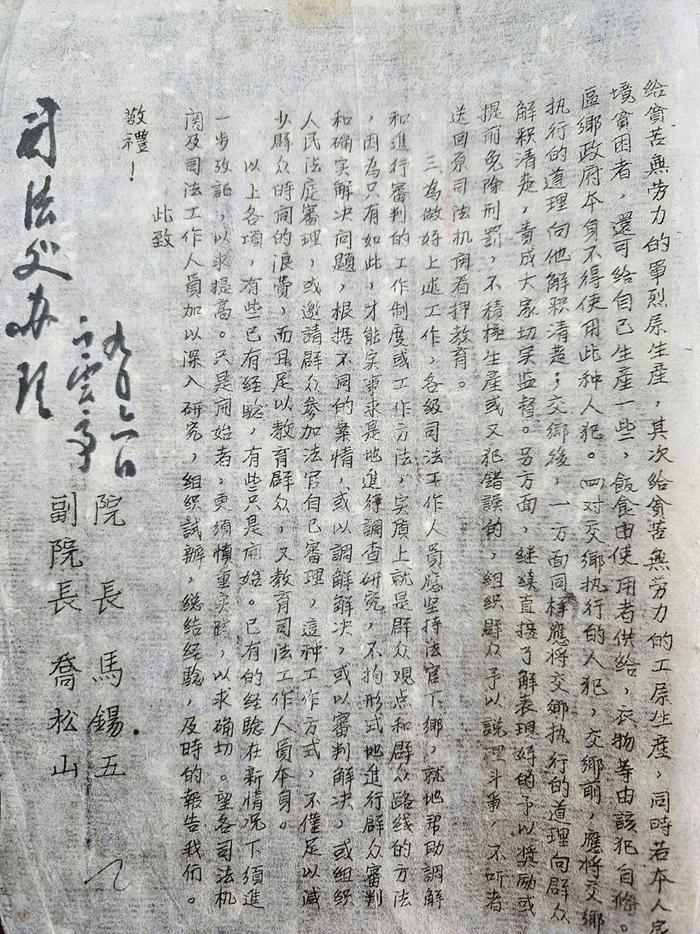 给貧苦無劳力的軍烈屏生產，其次给貧苦無劳力的工屏生產，同時若本人家
境貧困者，還可给自己生產一些，飯食由使用者供给，衣物等由該犯自偹。
區鄉政府本身不得使用此种人犯。四对交鄉执行的人犯，交鄉前，應将交鄉
执行的道理向他解釈清楚；交鄉後，一方面同样應将交鄉执行的道理向群众
解釈清楚，責成大家切实监督。另方面，継续直接了解表現好的予以奨励或
提前免除刑罰，不積極生產或又犯錯誤的，組织群众予以說理斗争，不听者
送回原司法机関看押教育。
三為做好上述工作，各級司法工作人員應坚持法官下鄉，就地帮助調解
和進行審判的工作制度或工作方法，实質上就是群众观点和群众路线的方法
，因為只有如此，才能实事求是地進行調查研究，不拘形式地進行群众審判
和确实解决问題，根据不同的案情，或以調解解决，或以審判解决，或组织
人民法庭審理，或邀請群众参加法官自己審理，這种工作方式，不僅足以减
少群众時间的浪費，而且足以教育群众，又教育司法工作人員本身。
以上各項，有些已有经驗，有些只是開始。已有的经驗在新情况下須進
一步攷証，以求提高。只是開始者，更須慎重实践，以求确切。望各司法机
関及司法工作人員加以深入研究，組织試辦，総结经驗，及時的報告我们。
此致
敬禮！
院長 馬錫五
副院長 喬松山
九月廿一日
司法处办理